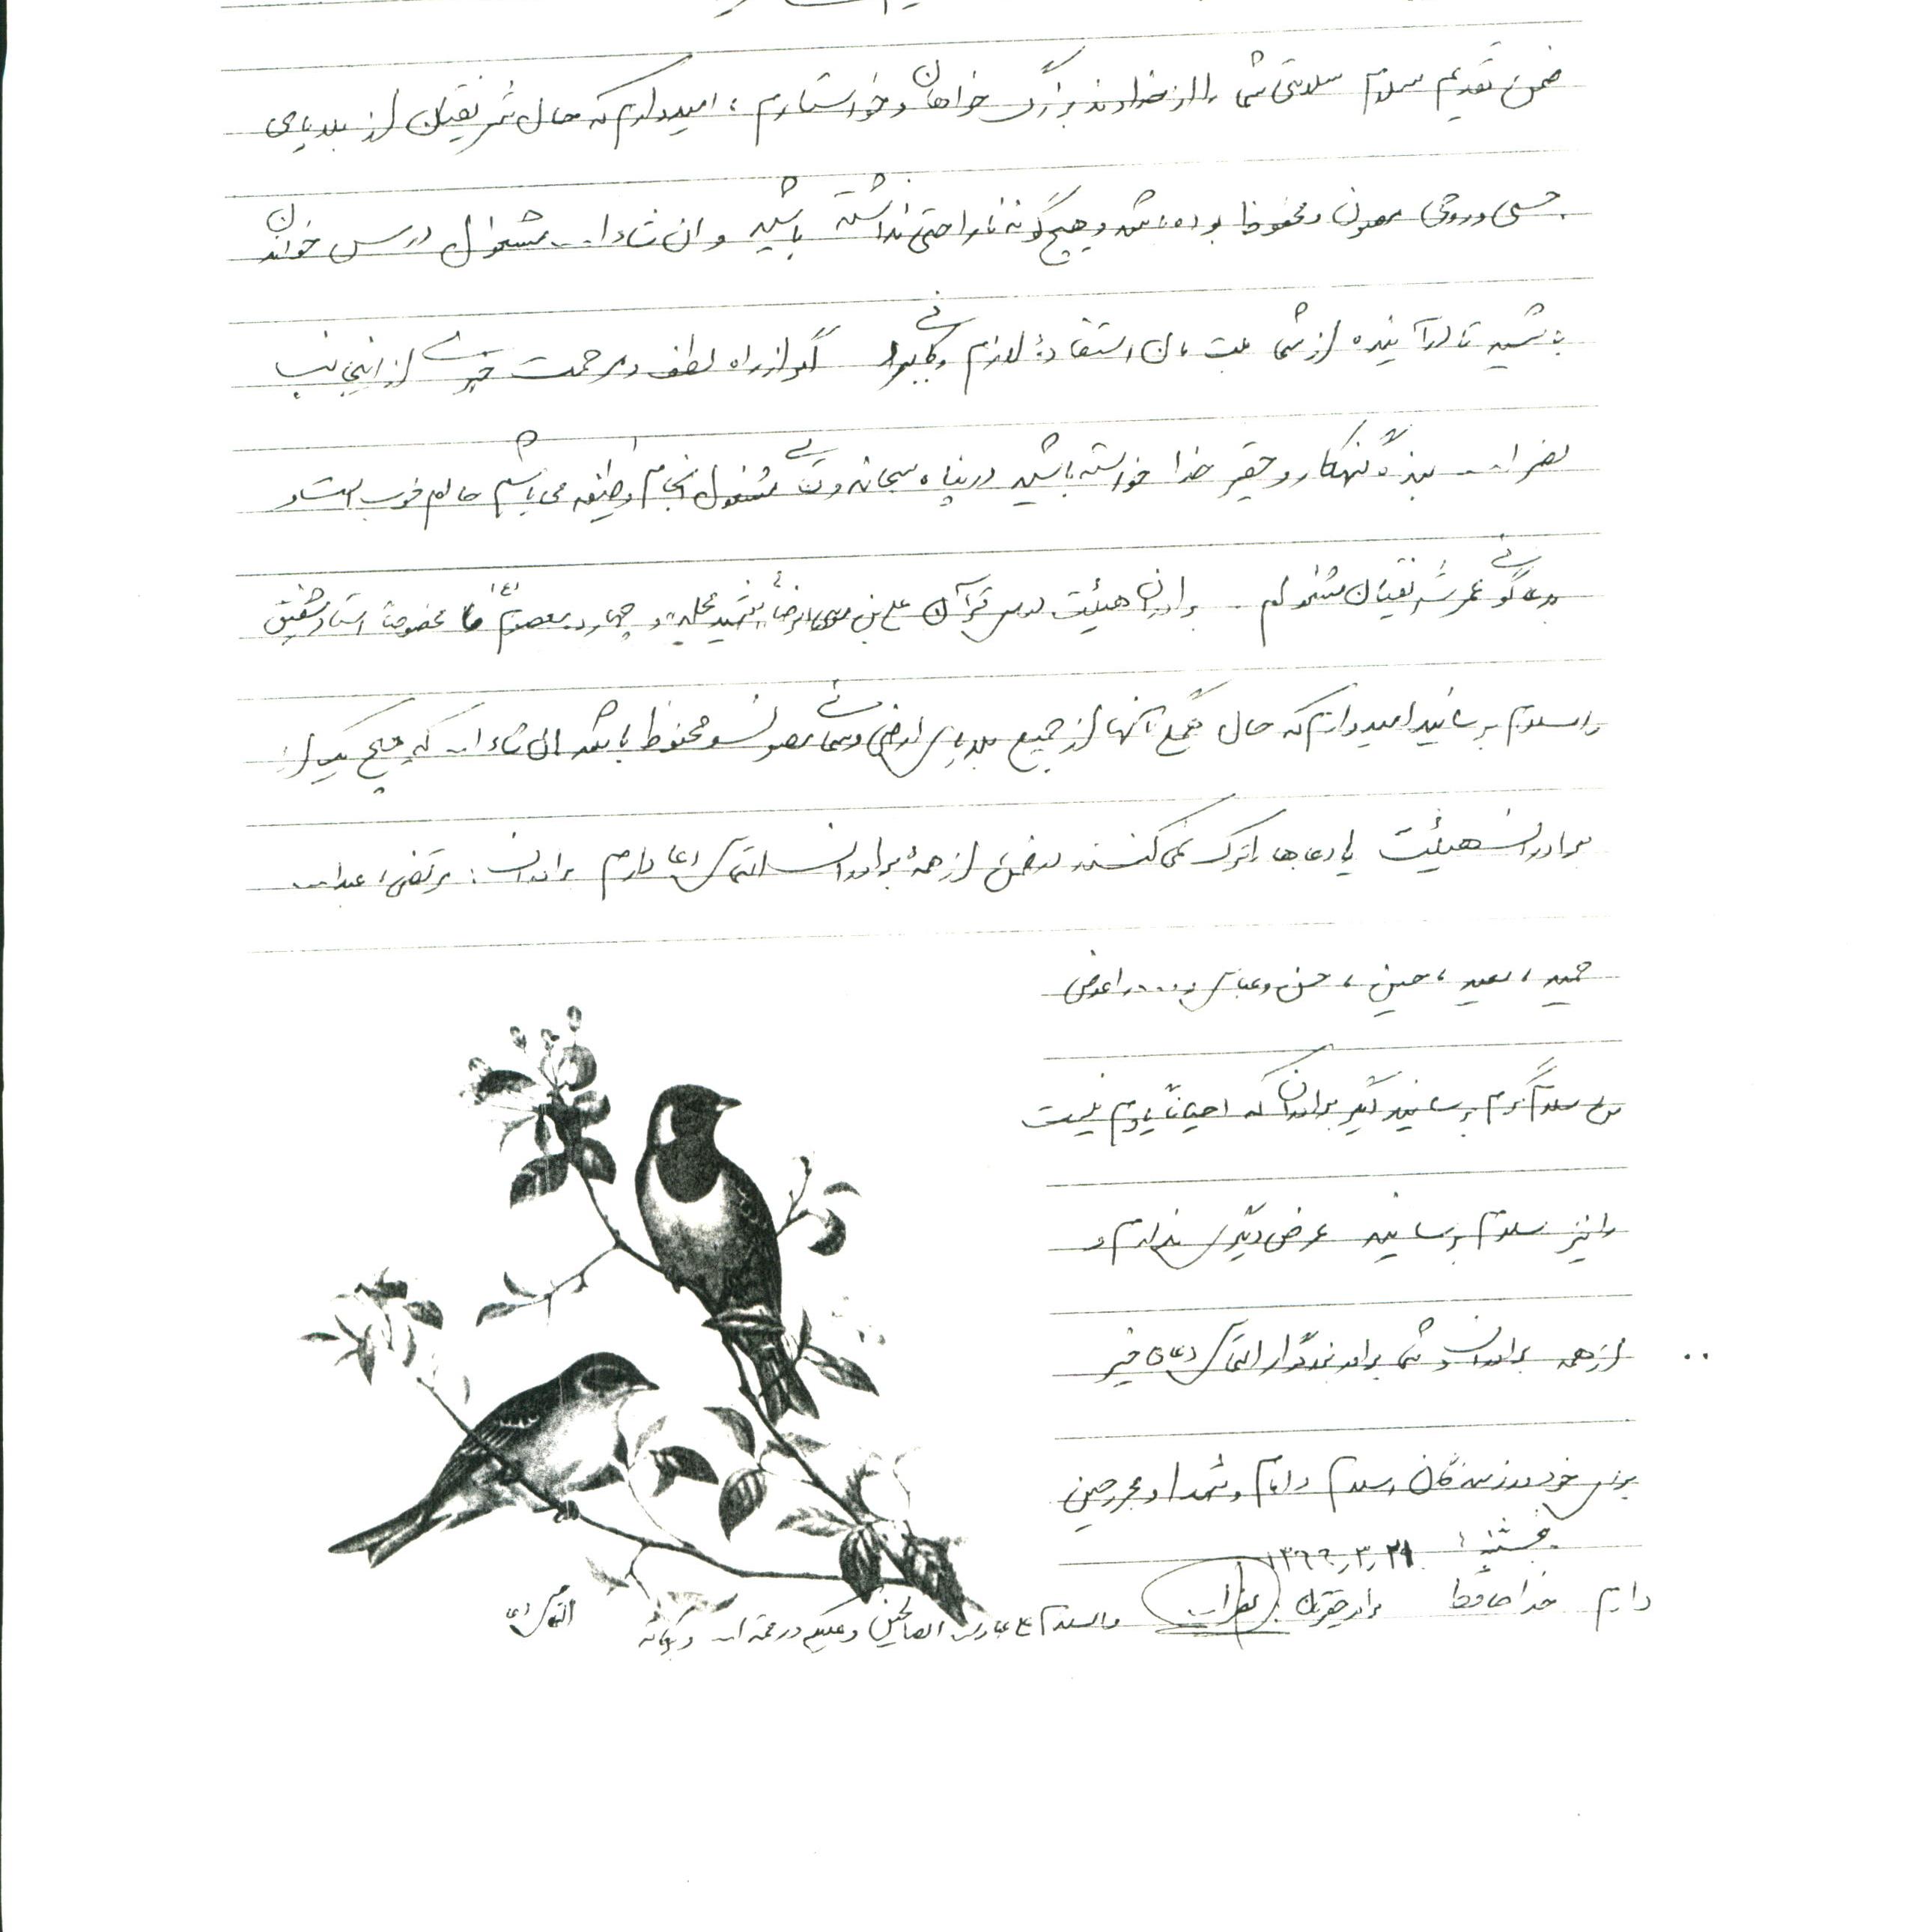 ضمن تقدیم سلام سلامتی شما را از خداوند بزرگ خواهان و خواستارم، امیدوارم که حال شریفتان از بلایای
جسمی و روحی مصون و محفوظ بوده باشد و هیچگونه ناراحتی نداشته باشید و ان شاء ا... مشغول درس خواندن
باشید تا در آینده از شما ملت مان استفادهٔ لازم و کافی ببرد اگر از راه لطف و مرحمت خبری از اینجانب
نصرا... بندهٔ گنهکار و حقیر خدا خواسته باشید در پناه سبحانه و تعالی مشغول انجام وظیفه می باشم حالم خوب است و
بدعاگوئی عمر شریفتان مشغولم . برادران هیئت درس قرآن علی بن موسی الرضا (ع) شهید محلاتی و چهارده معصوم (ع) مخصوصاً استاد شفیق
را سلام برسانید امیدوارم که حال همگی آنها از جمیع بلایای ارضی و سمائی مصون و محفوظ باشد ان شاء ا... که هیچ یک از
برادران هیئت یا دعاها را ترک نمی کنند در ضمن از همهٔ برادران التماس دعا دارم برادران: مرتضی، عبدا...
حمید، سعید، حسین، حسن و عباس و .... را عوض
من سلام گرم برسانید دیگر برادران که احیاناً یادم نیست
را نیز سلام برسانید عرض دیگری ندارم و
از همه برادران و شما برادر بزرگوار التماس دعای خیر
برای خود و رزمندگان اسلام و امام و شهدا و مجروحین
جمعه: ۱۳۶۶٫۳٫۲۹
دارم خدا حافظ برادر حقیرتان نصرا...
والسلام علی عباد ا... الصالحین و علیکم و رحمة ا... و برکاته
التماس دعا